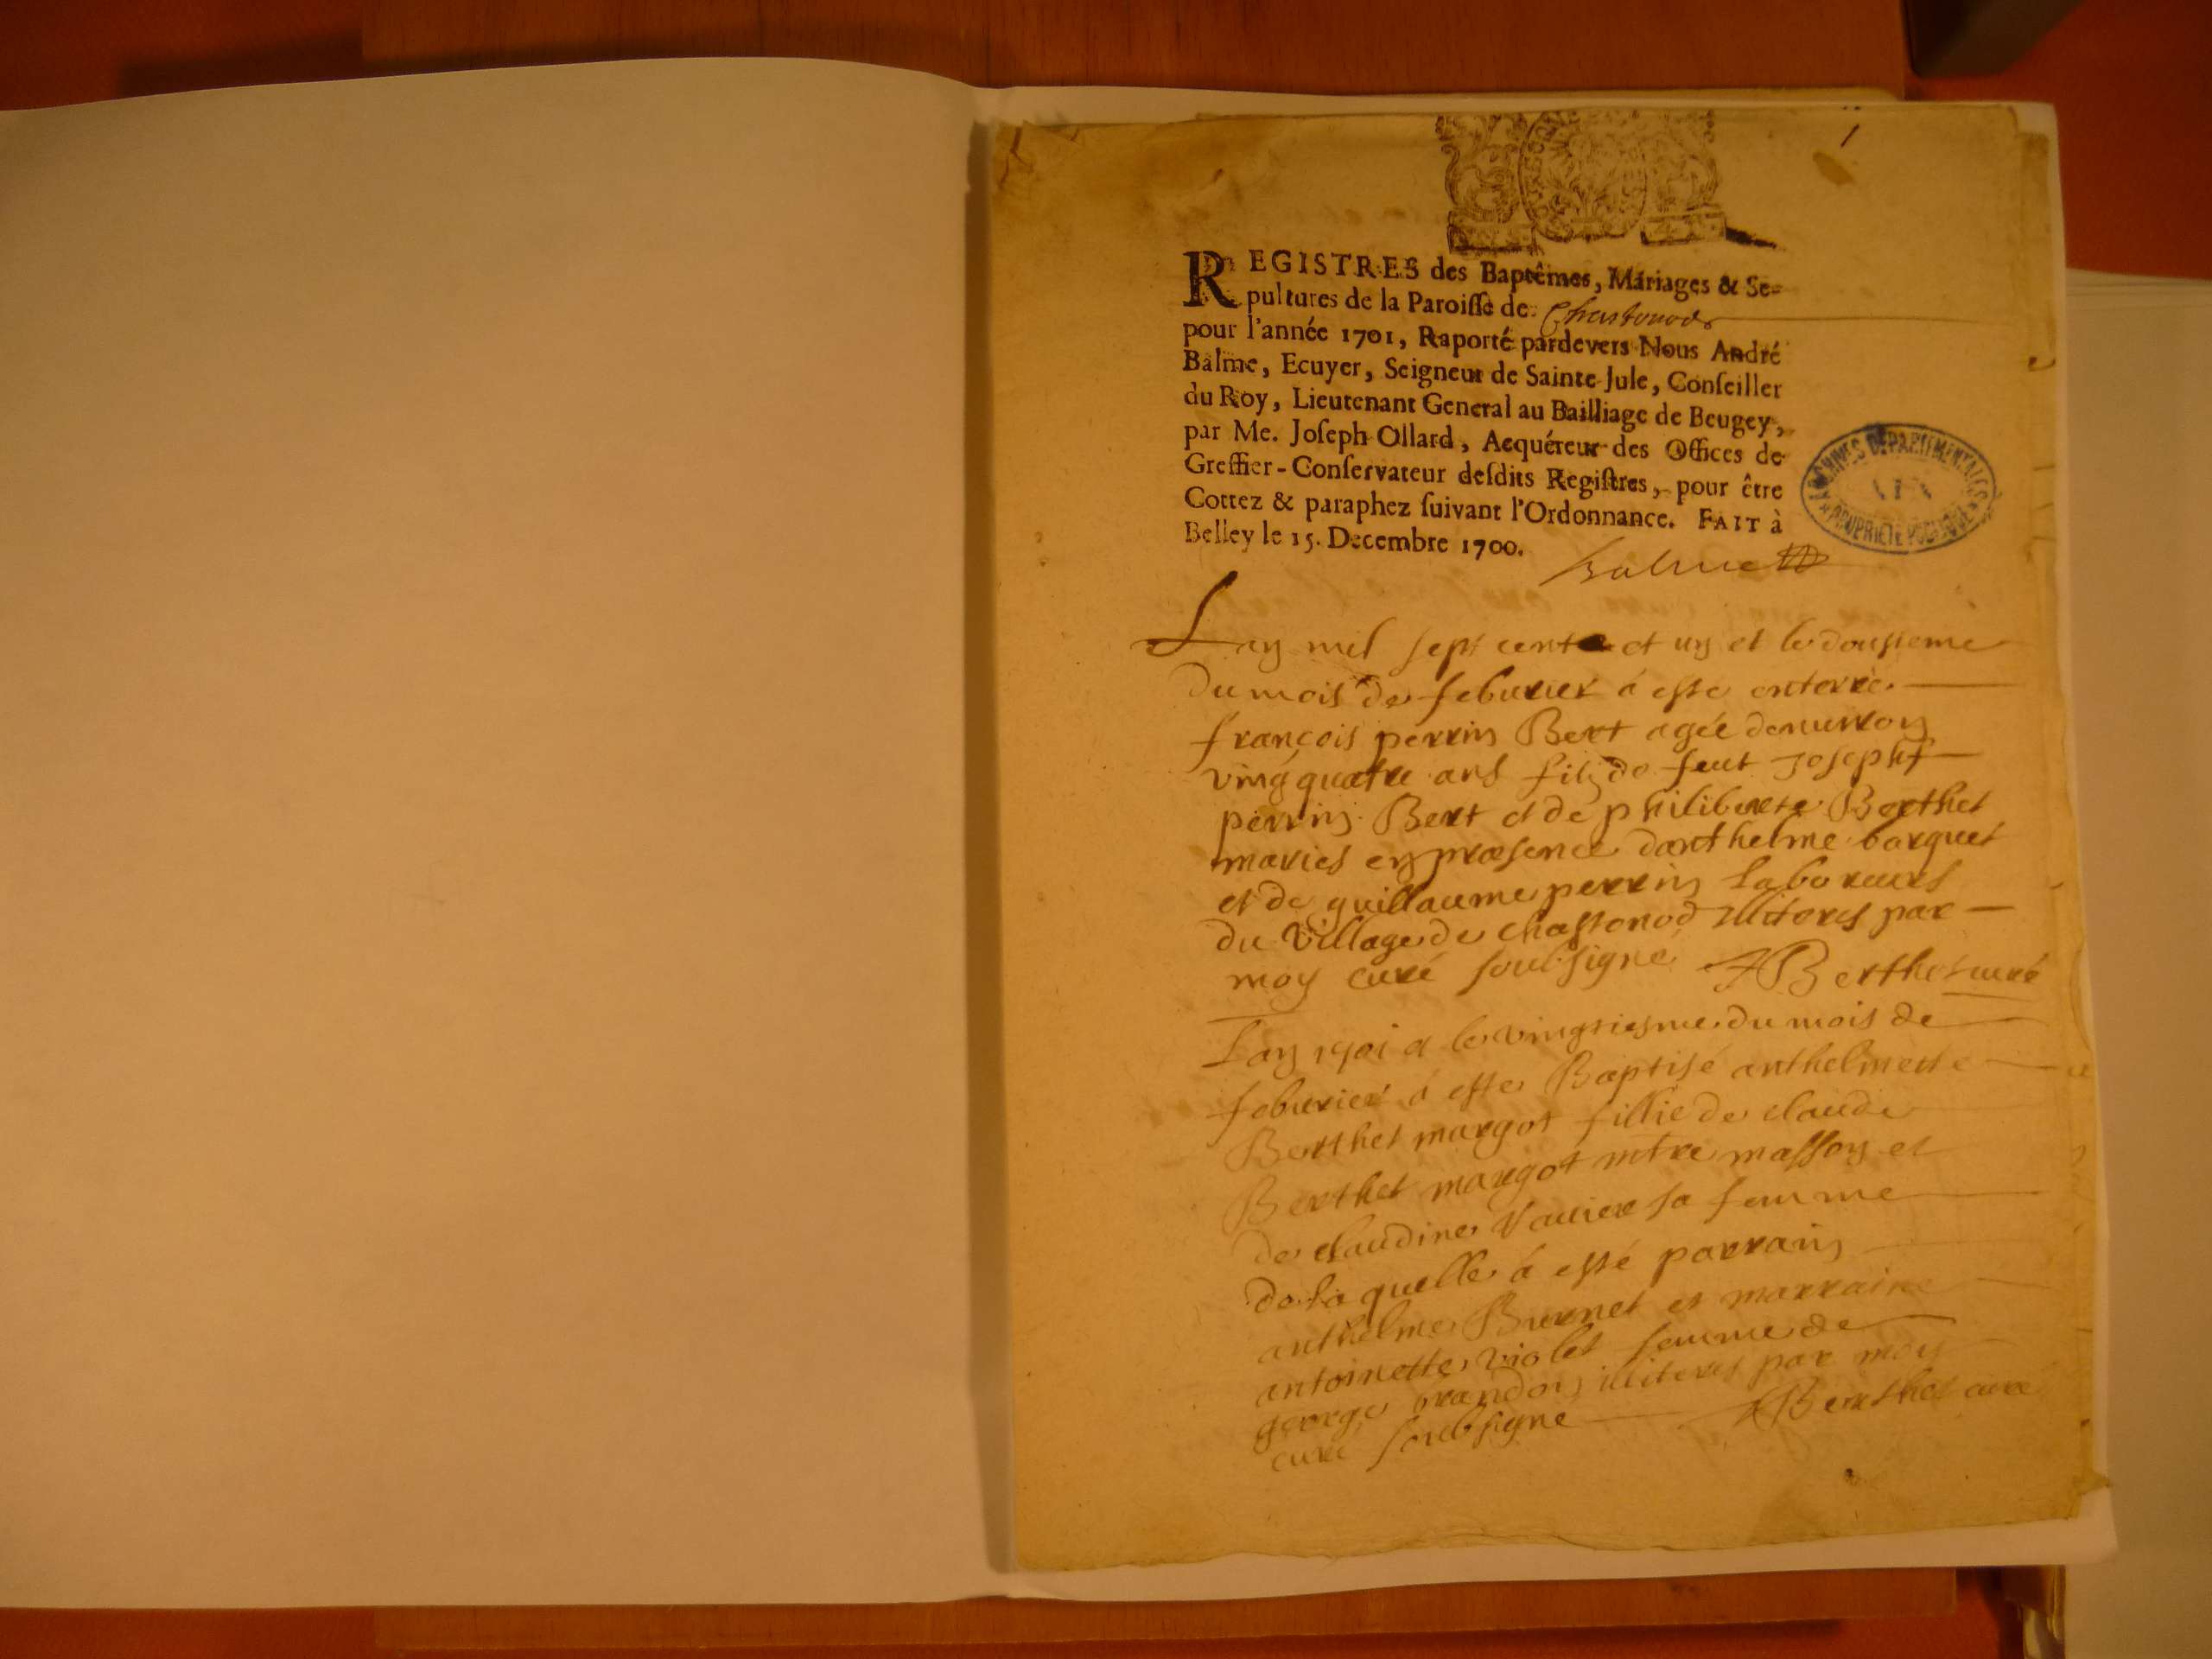 1
REGISTRES des Baptêmes, Mariages & Se-
pultures de la Paroisse de Chastonod
pour l'année 1701, Raporté pardevers Nous André
Balme, Ecuyer, Seigneur de Sainte Jule, Conseiller
du Roy, Lieutenant General au Bailliage de Beugey,
par Me. Joseph Ollard, Acquéreur des Offices de
Greffier-Conservateur desdits Registres, pour être
Cottez & paraphez suivant l'Ordonnance. FAIT à
Belley le 15. Decembre 1700.
Balme
ARCHIVES DEPARTEMENTALES
PROPRIETE PUBLIQUE
Lan mil sept cent et un et le dousieme
du mois de feburier á esté enterré
françois perrin Bert agée denuiron
vingquatre ans fils de feut Joseph
perrin Bert et de philiberte Berthet
mariés en præsence danthelme barquet
et de guillaume perrin laboreurs
du village de chastonod illiterés par
moy curé soubsigné Berthet curé
Lan 1701 et le vingtiesme du mois de
feburier á esté Baptisé anthelmette
Berthet margot fillie de claude
Berthet margot mtre masson et
de claudine sa femme
de la quelle á esté parrain
anthelme Burnet et marraine
antoinette violet femme de
george illiterés par moy
curé soubsigné Berthet curé